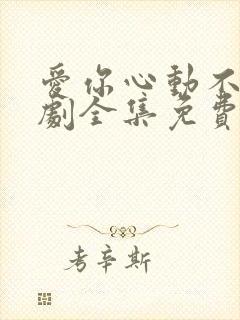 愛你心動不
劇全集免費
考辛斯